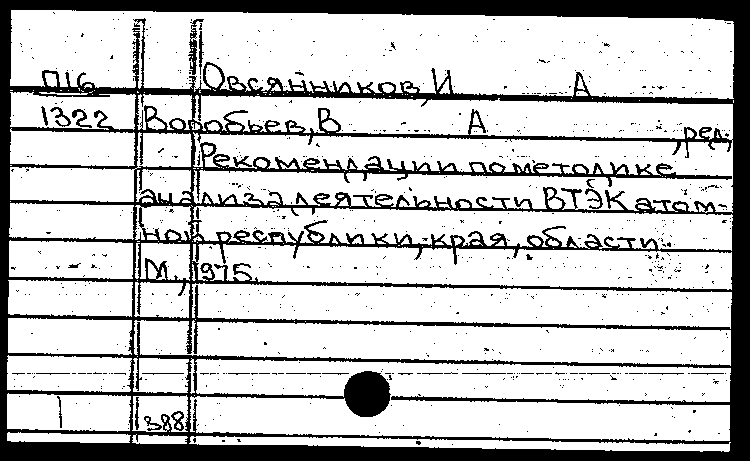 П16 Овсянников, И А
1322 Воробьев, В А , ред.
Рекомендации по методике
анализа деятельности ВТЭК атом-
ной республики, края, области.
М., 1975.
1 388